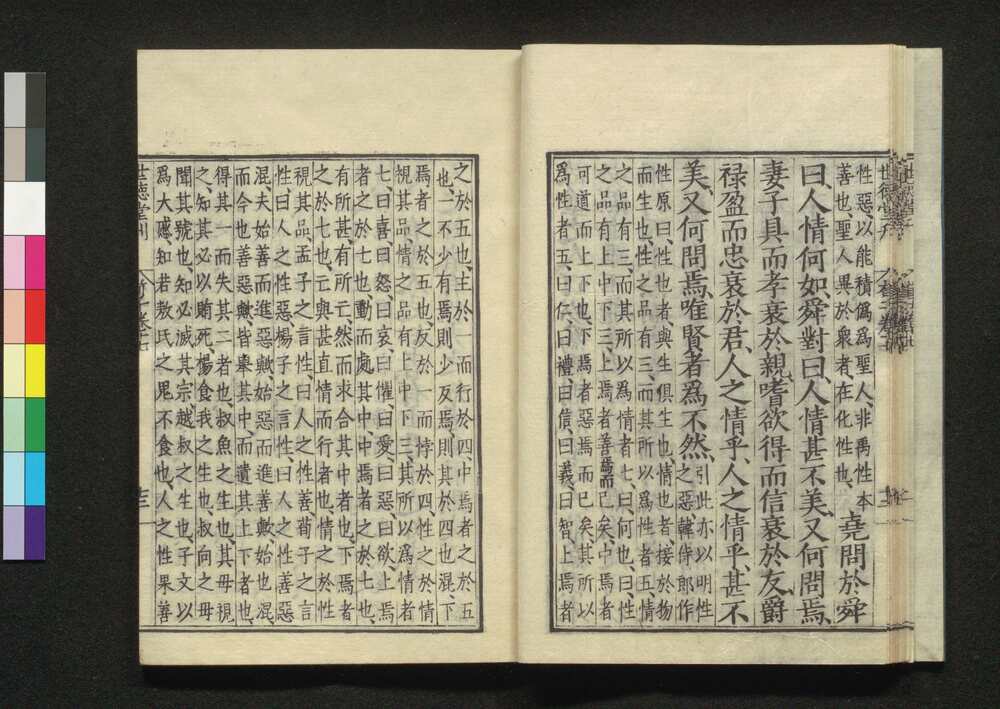 性惡、以能積僞爲聖人、非禹性本
善也、聖人異於衆者、在化性也、
堯問於舜
曰、人情何如、舜對曰、人情甚不美、又何問焉、
妻子具而孝衰於親、嗜欲得而信衰於友、爵
祿盈而忠衰於君、人之情乎、人之情乎、甚不
美、又何問焉、唯賢者爲不然、
引此亦以明性
之惡、韓侍郎作
性原曰、性也者與生俱生也、情也者接於物
而生也、性之品有三、而其所以爲性者五、情
之品有三、而其所以爲情者七、曰何也、曰性
之品有上中下三、上焉者善焉而已矣、中焉者
可道而上下也、下焉者惡焉而已矣、其所以
爲性者五、曰仁、曰禮、曰信、曰義、曰智、上焉者
之於五也、主於一而行於四、中焉者之於五
也、一不少有焉、則少反焉、則其於四也混、下
焉者之於五也、反於一而悖於四、性之於情
視其品、情之品有上中下三、其所以爲情者
七、曰喜曰怒、曰哀曰懼、曰愛曰惡曰欲、上焉
者之於七也、動而處其中、中焉者之於七也、
有所甚、有所亡、然而求合其中者也、下焉者
之於七也、亡與甚直情而行者也、情之於性
視其品、孟子之言性曰人之性善、荀子之言
性曰、人之性惡、楊子之言性曰、人之性善惡
混、夫始善而進惡歟、始惡而進善歟、始也混、
而今也善惡歟、皆舉其中而遺其上下者也、
得其一而失其二者也、叔魚之生也、其母視
之、知其必以賄死、楊食我之生也、叔向之母
聞其號也、知必滅其宗、越叔之生也、子文以
爲大慼、知若敖氏之鬼不食也、人之性果善
世德堂刊